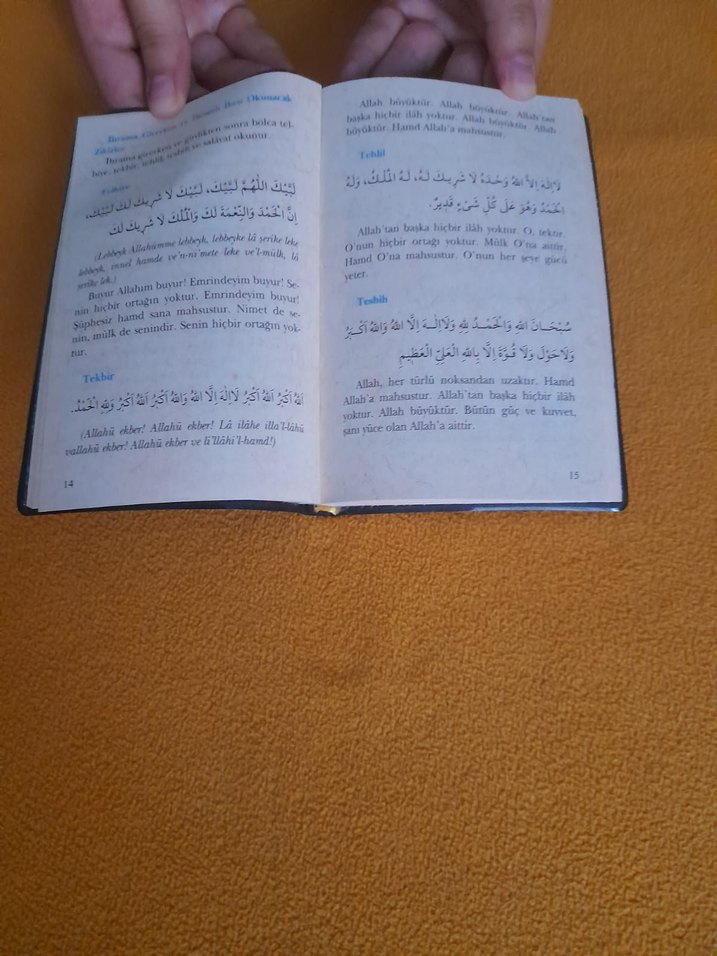 İhrama Girerken ve İhramlı İken Okunacak
Zikirler
İhrama girerken ve girdikten sonra bolca tel-
biye, tekbir, tehlil, tesbih ve salâvat okunur.
Telbiye
لَبَّيْكَ اللّٰهُمَّ لَبَّيْكَ، لَبَّيْكَ لَا شَرِيكَ لَكَ لَبَّيْكَ،
اِنَّ الْحَمْدَ وَالنِّعْمَةَ لَكَ وَالْمُلْكَ لَا شَرِيكَ لَكَ
(Lebbeyk Allahümme lebbeyk, lebbeyke lâ şerike leke
lebbeyk, innel hamde ve'n-ni'mete leke ve'l-mülk, lâ
şerike lek.)
Buyur Allahım buyur! Emrindeyim buyur! Se-
nin hiçbir ortağın yoktur. Emrindeyim buyur!
Şüphesiz hamd sana mahsustur. Nimet de se-
nin, mülk de senindir. Senin hiçbir ortağın yok-
tur.
Tekbir
اَللّٰهُ اَكْبَرُ اَللّٰهُ اَكْبَرُ لَااِلٰهَ اِلَّا اللّٰهُ وَاللّٰهُ اَكْبَرُ اَللّٰهُ اَكْبَرُ وَلِلّٰهِ الْحَمْدُ.
(Allahü ekber! Allahü ekber! Lâ ilâhe illa'l-lâhü
vallahü ekber! Allahü ekber ve li'llâhi'l-hamd!)
14
Allah büyüktür. Allah büyüktür. Allah'tan
başka hiçbir ilâh yoktur. Allah büyüktür. Allah
büyüktür. Hamd Allah'a mahsustur.
Tehlil
لَااِلٰهَ اِلَّا اللّٰهُ وَحْدَهُ لَا شَرِيكَ لَهُ، لَهُ الْمُلْكُ، وَلَهُ
الْحَمْدُ وَهُوَ عَلَى كُلِّ شَىْءٍ قَدِيرٌ.
Allah'tan başka hiçbir ilâh yoktur. O, tektir.
O'nun hiçbir ortağı yoktur. Mülk O'na aittir.
Hamd O'na mahsustur. O'nun her şeye gücü
yeter.
Tesbih
سُبْحَانَ اللّٰهِ وَالْحَمْدُ لِلّٰهِ وَلَااِلٰهَ اِلَّا اللّٰهُ وَاللّٰهُ اَكْبَرُ
وَلَاحَوْلَ وَلَا قُوَّةَ اِلَّا بِاللّٰهِ الْعَلِىِّ الْعَظِيمِ
Allah, her türlü noksandan uzaktır. Hamd
Allah'a mahsustur. Allah'tan başka hiçbir ilâh
yoktur. Allah büyüktür. Bütün güç ve kuvvet,
şanı yüce olan Allah'a aittir.
15